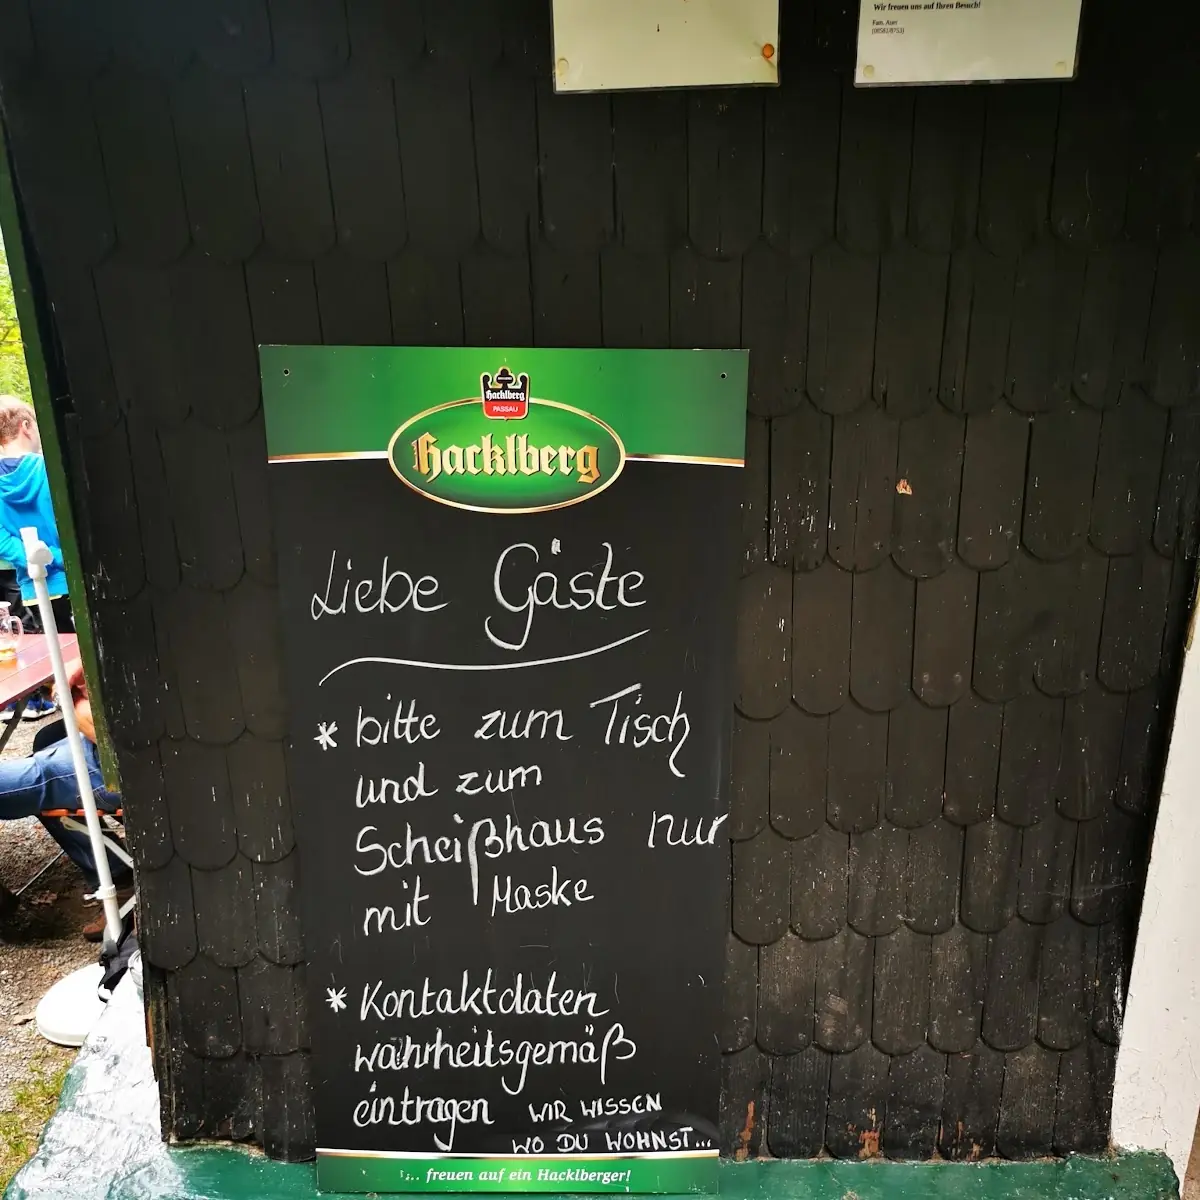 Wir freuen uns auf Ihren Besuch!
Fam. Auer
(08581/8753)
Hacklberg
PASSAU
Hacklberg
Liebe Gäste
* bitte zum Tisch
und zum
Scheißhaus nur
mit Maske
* Kontaktdaten
wahrheitsgemäß
eintragen WIR WISSEN
WO DU WOHNST...
... freuen auf ein Hacklberger!